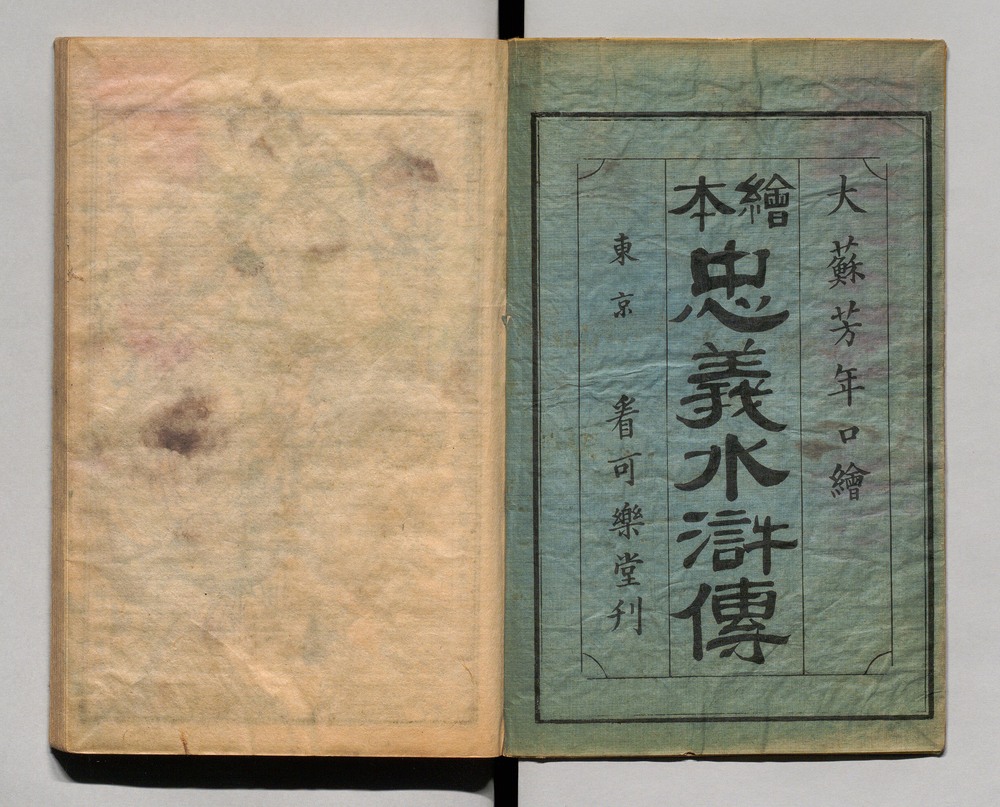 大蘇芳年口繪
繪本
忠義水滸傳
東京 看可樂堂刊